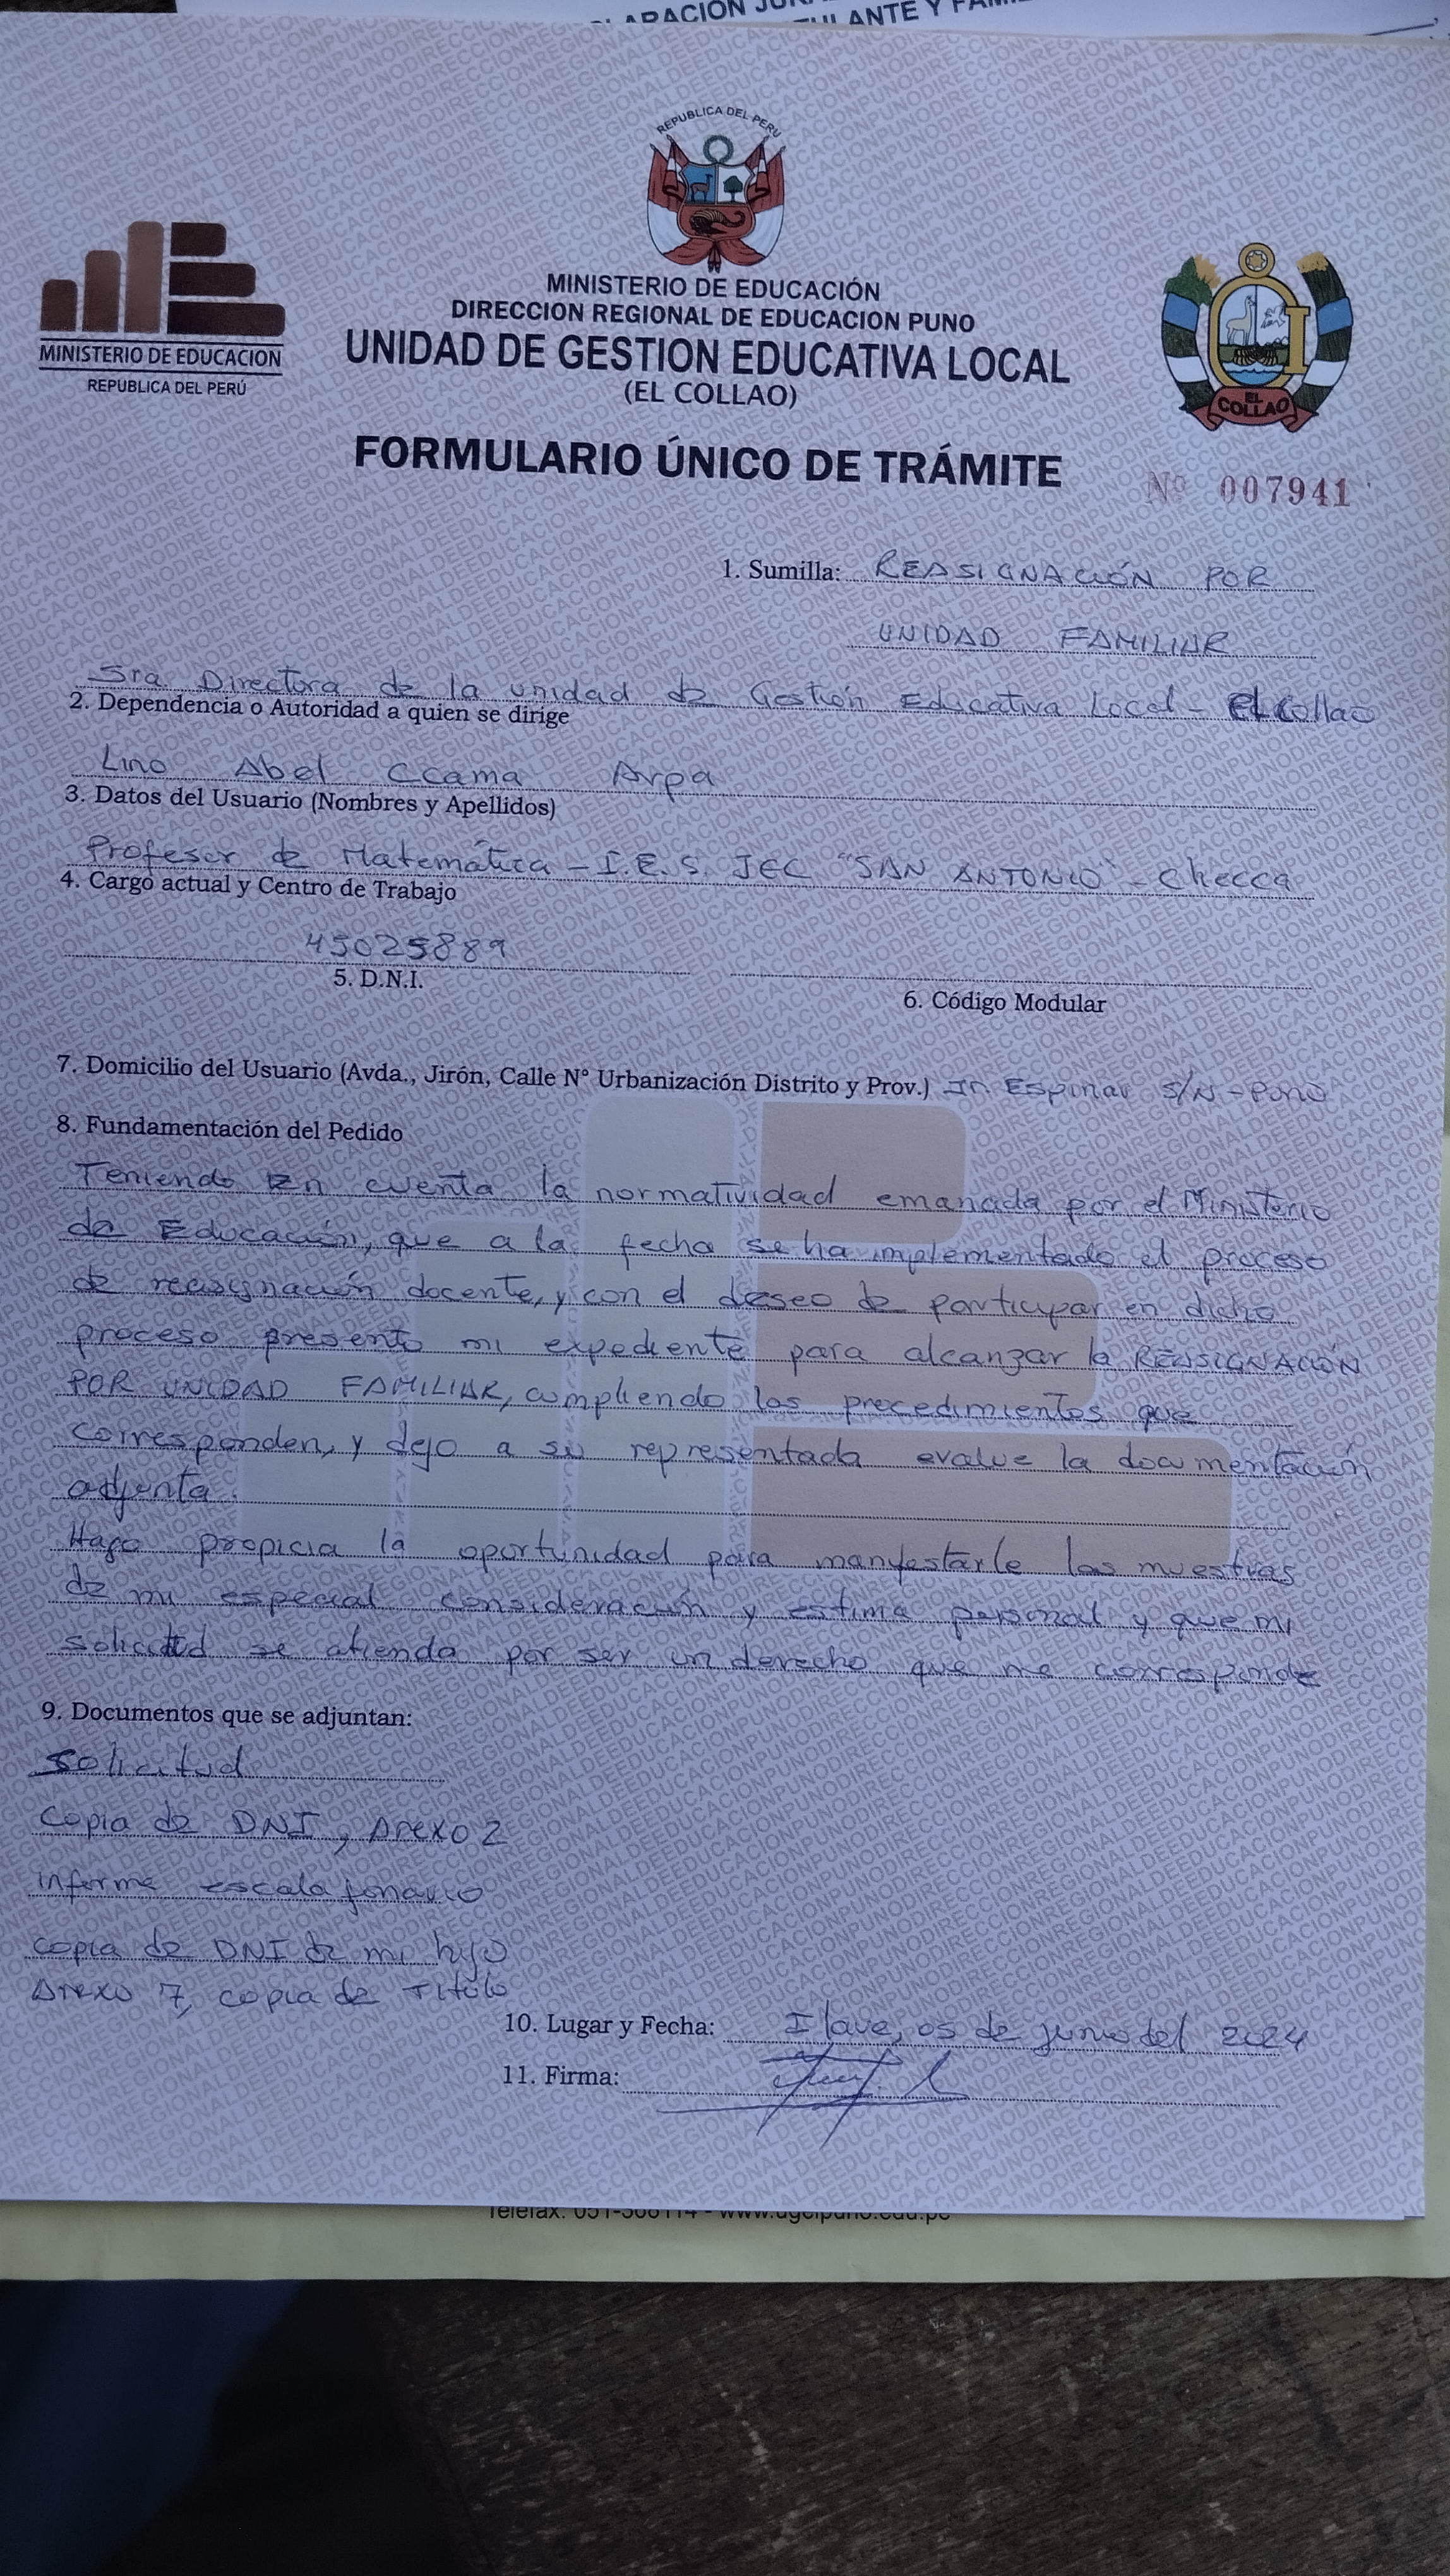 LARACION JUR
ULANTE Y FAMI
REPUBLICA DEL PERU
MINISTERIO DE EDUCACION
REPUBLICA DEL PERÚ
MINISTERIO DE EDUCACIÓN
DIRECCION REGIONAL DE EDUCACION PUNO
UNIDAD DE GESTION EDUCATIVA LOCAL
(EL COLLAO)
EL COLLAO
FORMULARIO ÚNICO DE TRÁMITE
Nº 007941
1. Sumilla: REASIGNACIÓN POR
UNIDAD FAMILIAR
Sra. Directora de la unidad de Gestión Educativa Local - El Collao
2. Dependencia o Autoridad a quien se dirige
Lino Abel Ccama Arpa
3. Datos del Usuario (Nombres y Apellidos)
Profesor de Matemática - I.E.S. JEC "SAN ANTONIO" - Checca
4. Cargo actual y Centro de Trabajo
45025889
5. D.N.I.
6. Código Modular
7. Domicilio del Usuario (Avda., Jirón, Calle N° Urbanización Distrito y Prov.) Jr. Espinar S/N - Puno
8. Fundamentación del Pedido
Teniendo en cuenta la normatividad emanada por el Ministerio
de Educación, que a la fecha se ha implementado el proceso
de reasignación docente, y con el deseo de participar en dicho
proceso presento mi expediente para alcanzar la REASIGNACIÓN
POR UNIDAD FAMILIAR, cumpliendo los precedimientos que
corresponden, y dejo a su representada evalue la documentación
adjunta.
Hago propicia la oportunidad para manifestarle las muestras
de mi especial consideración y estima personal y que mi
solicitud se atienda por ser un derecho que me corresponde
9. Documentos que se adjuntan:
Solicitud
Copia de DNI, Anexo 2
Informe escalafonario
copia de DNI de mi hijo
Anexo 7, copia de Titulo
10. Lugar y Fecha: Ilave, 05 de junio del 2024
11. Firma:
Telefax: 051-366114 - www.ugelpuno.edu.pe